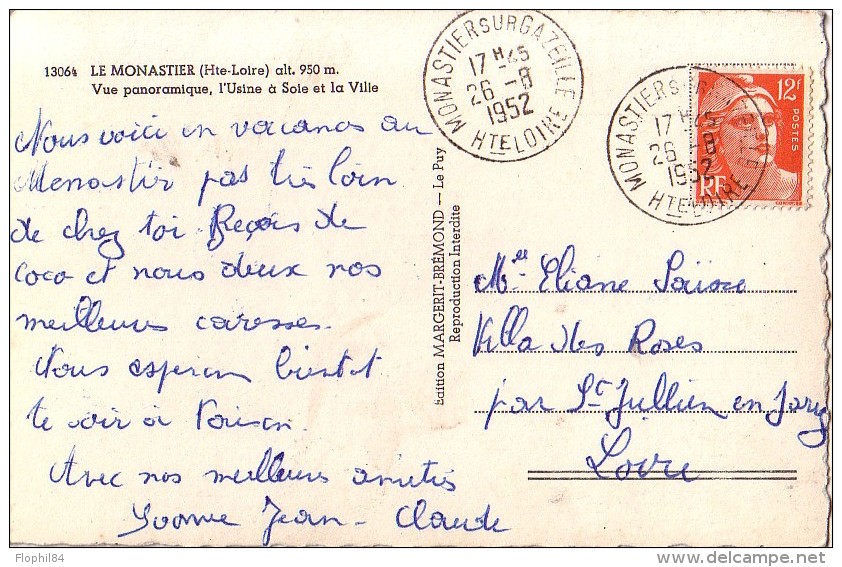 13064 LE MONASTIER (Hte-Loire) alt. 950 m.
Vue panoramique, l'Usine à Soie et la Ville
Nous voici en vacances au
Monastier pas très loin
de chez toi Reçois de
coco et nous deux nos
meilleures caresses.
Nous esperons bientot
te voir à
Avec nos meilleures amitiés
Yvonne Jean-Claude
Edition MARGERIT-BRÉMOND — Le Puy
Reproduction Interdite
MONASTIER SUR GAZEILLE
17 H 45
26 -8
1952
HTE LOIRE
MONASTIER SUR GAZEILLE
17 H 45
26 -8
1952
HTE LOIRE
12F
POSTES
RF
Mlle Eliane
Villa des Roses
par St Jullien en Jarez
Loire
Flophil84
www.delcampe.net